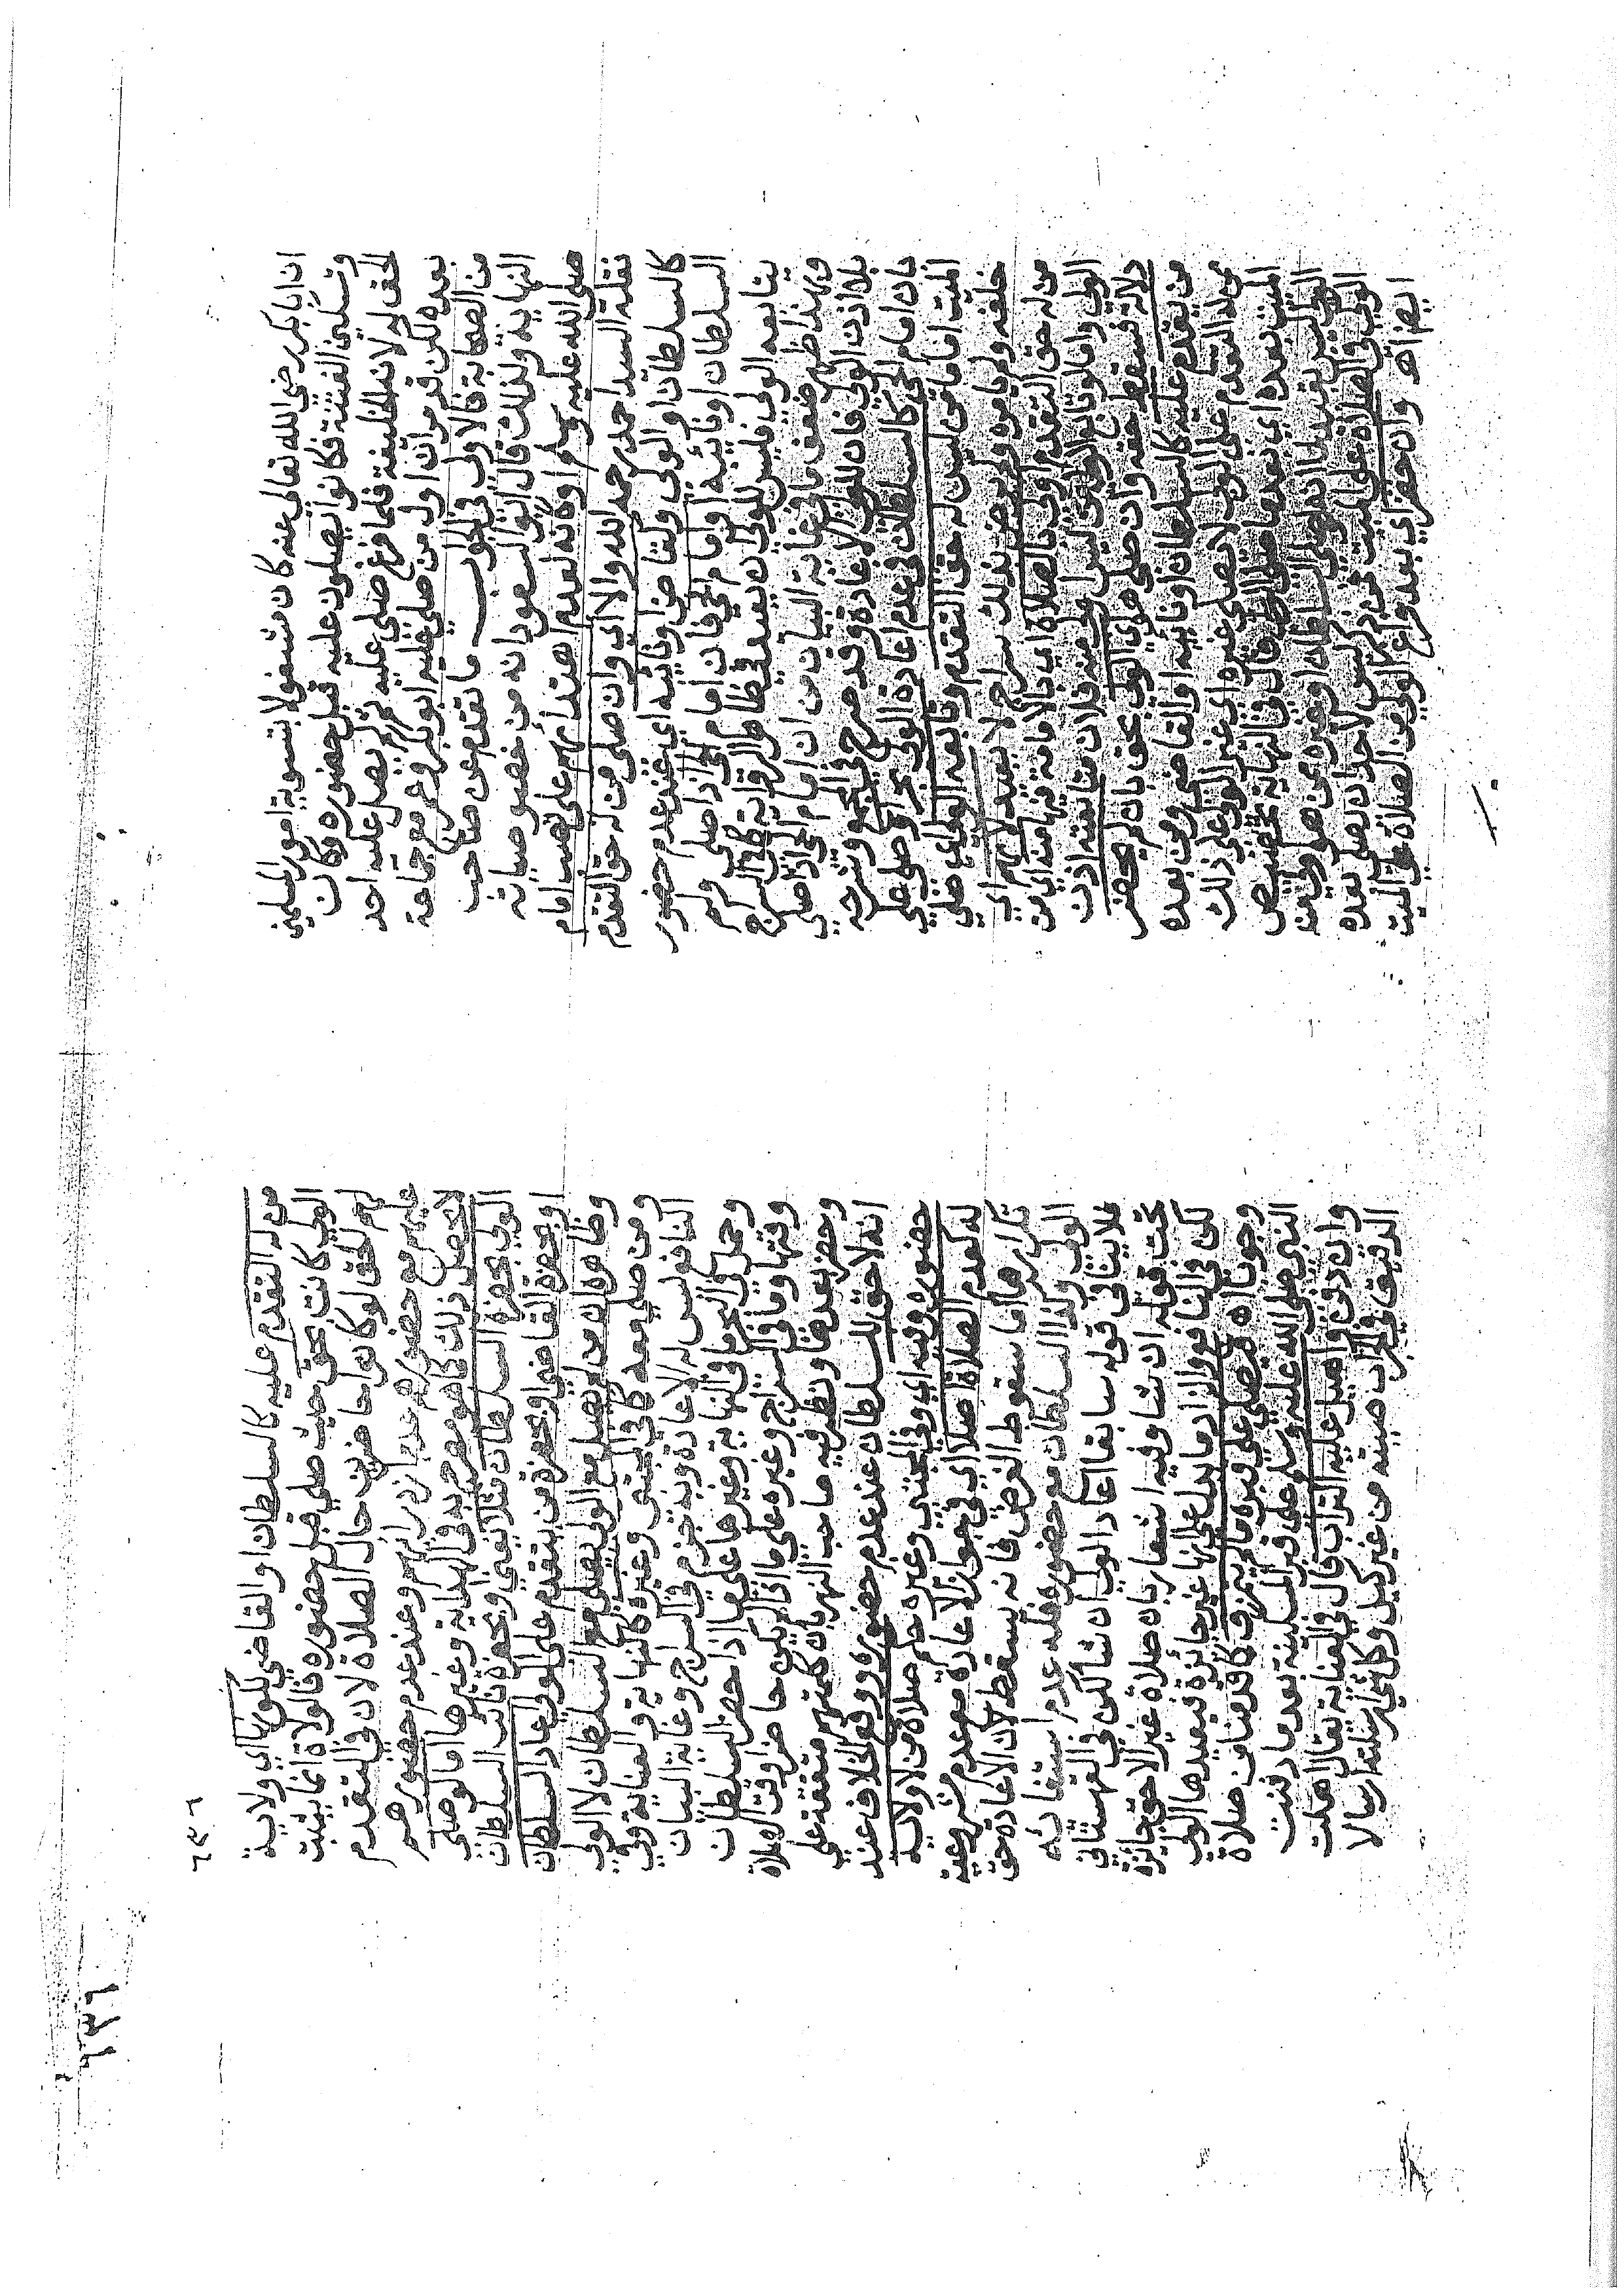 ان ابا بكر رضي الله تعالى عنه كان مشغولا بتسوية امور المسلمين
وتسكين الفتنة فكانوا يصلون عليه قبل حضوره وكان
الحق له لانه الخليفة فلما فرغ صلى عليه ثم لم يصل عليه احد
بعده لكن قدمر ان اول من صلى عليه ابو بكر وعمر مع جماعة
من الصحابة فالاولى في الجواب ما تقدم عن صاحب
النهاية ولذلك قال ابو السعود انه من خصوصياته
صلى الله عليه وسلم او كانه لعدم اهتدائهم على نصب امام
نقلة السيد احمد رحمه الله والا اي وان صلى من له حق التقدم
كالسلطان والولى والقاضي ونائبه اي عند عدم حضور
السلطان او نائبه او امام الحي فان امام الحي اذا صلى ولم
يتابعه الولى فليس للولى ان يعيد في ظاهر الرواية كذا في السراج
وبهذا ظهر ضعف ما في غاية البيان من ان امام الحي اذا صلى
بلا اذن الولى فان للولى الاعادة وقد صرح في المجمع وشرحه
بان امام الحي كالسلطان في عدم اعادة الولى بحر او صلى على
الميت اماما من ليس له حق التقدم وتابعه الولى اي صلى
خلفه ولم يامره ولم يرض بذلك سراج لا يعيد لانهم اي
من له حق التقدم اولى بالصلاة اي بالامامة فيها منه اي من
الولى واما لو تابع الولى من ليس اولى منه فلان متابعته اذن
دلالة فيسقط حقه وان صلى هو اي الولى بحق بان لم يحضر
من يقدم عليه كالسلطان او نائبه او القاضي ومن بعده
ممن له التقدم على الولى لا يصلى غيره اي غير الولى على ذلك
الميت بعده اي بعد ما صلى الولى قال في النهاية تخصيص
الولى ليس بقيد لما انه لو صلى السلطان او غيره ممن هو اولى من
الولى في الصلاة على الميت ممن ذكر ليس لاحد ان يصلى بعده
ايضا اهـ وان حضر اي بعد فراغ الولى من الصلاة على الميت
٦٣٦
من له التقدم عليه كالسلطان او القاضي لكونها اي ولاية
الولى كانت بحق حيث صلى قبل حضوره فالولاة انما يثبت
لهم الحق لو كانوا حاضرين حال الصلاة لان في التقدم
عليهم مع حضورهم عدم ازدرائهم وعند عدم حضورهم
لا يحصل ذلك كما هو مصرح به في الهداية وغيرها اما لو صلى
الولى بحضرة السلطان مثلا يعني او بحضرة نائب السلطان
او بحضرة القاضي او بحضرة من يتقدم على الولى اعاد السلطان
وظاهره ان من لم يصل مع الولى يصلي مع السلطان لا الولى
ومن صلى معه كما في المجتبى وغيره كالنهاية والعناية وفي
النافع ليس له الاعادة وبه جزم في السراج وغاية البيان
وحمل في البحر ما في النهاية وغيرها على ما اذا حضر السلطان
وقتها وما في السراج وغيره على ما اذا لم يكن حاضرا وقت الصلاة
وحضر بعدها ونظر فيه صاحب النهر بان كلمتهم متفقة على
انه لا حق للسلطان عند عدم حضوره ووقع الخلاف عند
حضوره وفيه اي وفي المجتبى وغيره حكم صلاة من لا ولاية
له كعدم الصلاة اصلا اي في جواز الاعادة مع عدم مشروعية
تكرارها اما سقوط الفرض فانه يسقط لان الاعادة حق
الولى وكذا السلطان مع حضوره فله عدم استيفائه
فلا ينافي قوله سابقا اعاد الولى ان شا لكن في القهستاني
تحت قوله ان شا وفيه اشعار بان صلاة غير الاحق جائزة
لكن في النافع والزاد ما يدل على انها غير جائزة فيعيدها الولى
وجوبا اهـ فيصلي على قبره ما لم يتمزق كما قدمنا من صلاة
النبي صلى الله عليه وسلم على قبر المسكينة بعد ما دفنت
وان دفن واهيل عليه التراب قال في العناية يقال اهلت
الدقيق في الجراب صببته من غير كيل وكل شي ارسلته ارسالا
٦٣٦